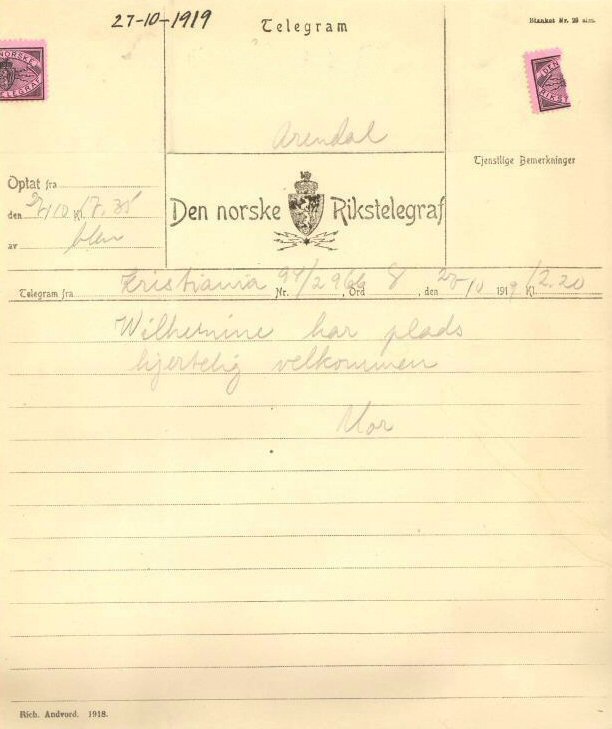 27-10-1919
Telegram
Blanket Nr. 29 alm.
NORSKE
TELEGRAF
DEN
RIKST
Arendal
Tjenstlige Bemerkninger
Optat fra
den 27/10 Kl. 17.35
av
Den norske Rikstelegraf
Telegram fra Kristiania Nr. Ord 8, den 27/10 1919 Kl.
Wilhelmine har plads
hjertelig velkommen
Mor
Rich. Andvord. 1918.